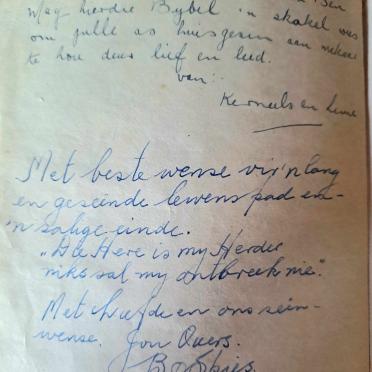 Mag hierdie Bybel 'n skakel wees
om julle as huisgesin aan mekaar
te hou deur lief en leed.
van:-
Kerneels en
Met beste wense vir 'n lang
en geseënde lewenspad en-
'n salige einde.
"Die Here is my Herder
niks sal my ontbreek nie."
Met liefde en ons seën-
wense. Jou Ouers.